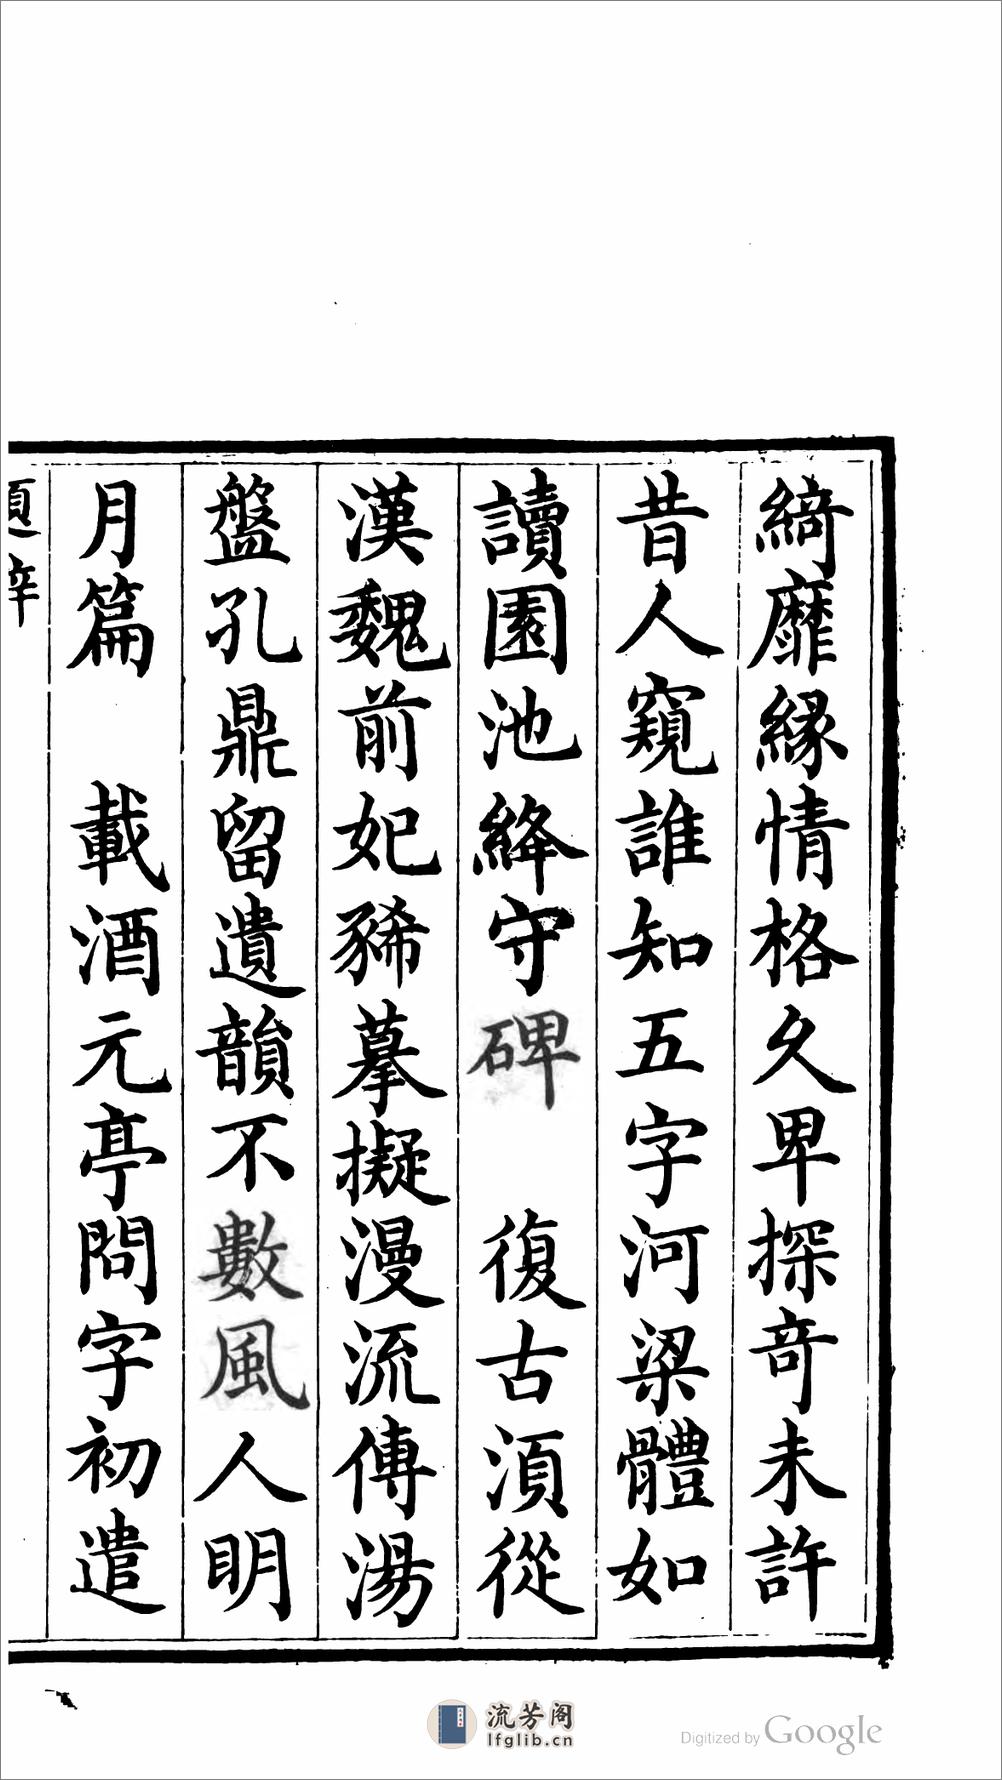 綺靡緣情格久卑探奇未許
昔人窺誰知五字河梁體如
讀園池絳守碑　復古湏從
漢魏前妃豨摹擬漫流傳湯
盤孔鼎留遺韻不數風人明
月篇　載酒元亭問字初遣
題辞
流芳阁
lfglib.cn
Digitized by Google